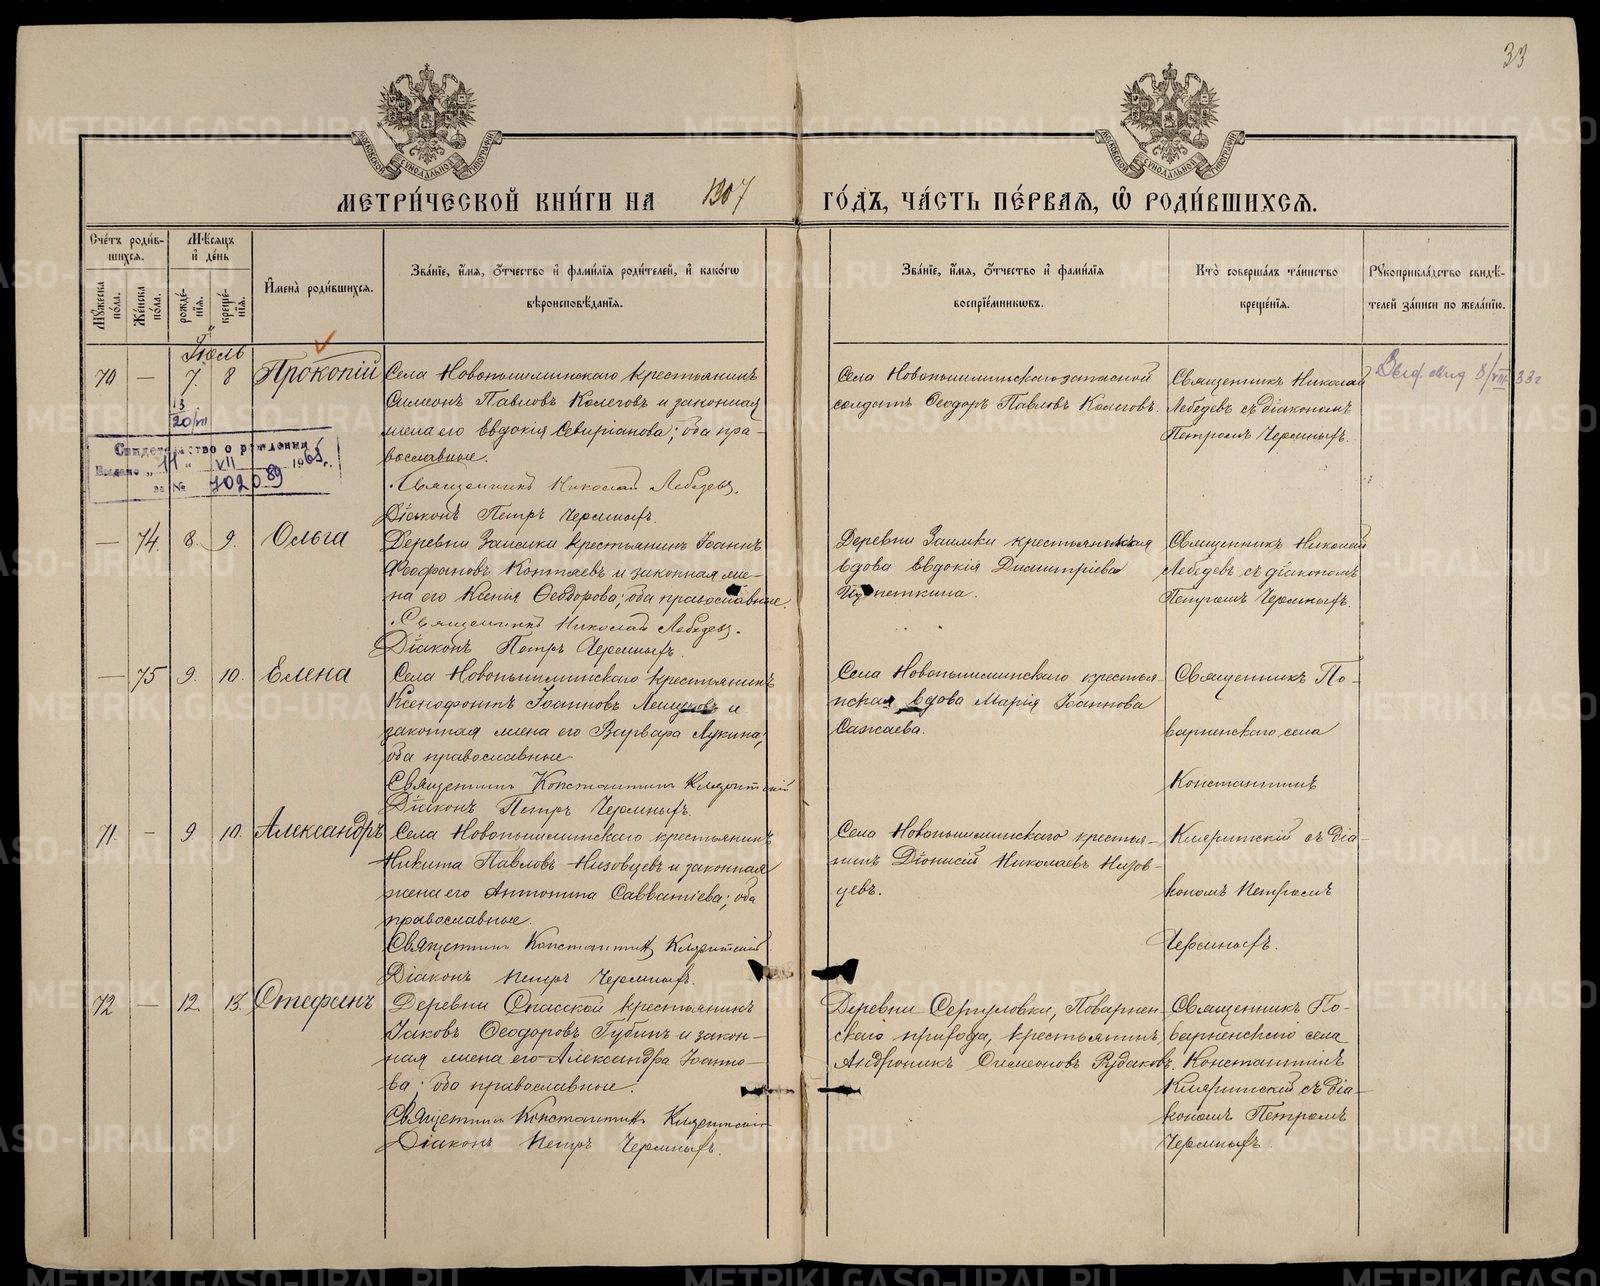 33
МЕТРИ́ЧЕСКОЙ КНИ́ГИ НА 1907 ГО́ДЪ, ЧА́СТЬ ПЕ́РВАЯ, Ѡ РОДИ́ВШИХСЯ.
Сче́тъ роди́вшихся.
Му́жеска по́ла.
Же́нска по́ла.
Мѣ́сяцъ и҆ де́нь
рожде́нїя.
креще́нїя.
И҆мена̀ роди́вшихся.
Зва́нїе, и҆́мя, ѻ҆́тчество и҆ фами́лїя роди́телей, и҆ како́гѡ
вѣроисповѣ́данїя.
Зва́нїе, и҆́мя, ѻ҆́тчество и҆ фами́лїя
воспрїе́мникѡвъ.
Кто̀ соверша́лъ та́инство
креще́нїя.
Рукоприкла́дство свидѣ́телей за́писи по жела́нїю.
Іюль
70 — 7. 8 Прокопій
13
20/VII
Села Новопышминскаго крестьянинъ
Симеонъ Павловъ Колеговъ и законная
жена его Евдокія Севиріанова; оба пра-
вославные.
Священникъ Николай Лебедевъ.
Діаконъ Петръ Черемныхъ.
Села Новопышминскаго запасной
солдатъ Ѳеодоръ Павловъ Колеговъ.
Священникъ Николай
Лебедевъ съ діакономъ
Петромъ Черемныхъ.
8/VIII 33 г
Свидетельство о рождении
Выдано „11“ VII 1965 г.
за № 702089
— 74. 8. 9. Ольга
Деревни Заимки крестьянинъ Іоаннъ
Ѳеофановъ Коптяевъ и законная же-
на его Ксенія Ѳеодорова; оба православные.
Священникъ Николай Лебедевъ.
Діаконъ Петръ Черемныхъ.
Деревни Заимки крестьянская
вдова Евдокія Димитріева
Священникъ Николай
Лебедевъ съ діакономъ
Петромъ Черемныхъ.
— 75 9. 10. Елена
Села Новопышминскаго крестьянинъ
Ксенофонтъ Іоанновъ и
законная жена его Варвара Лукина;
оба православные
Священникъ Константинъ
Діаконъ Петръ Черемныхъ.
Села Новопышминскаго крестья-
нская вдова Марія Іоаннова
Сажаева.
Священникъ По-
варненскаго села
Константинъ
71. — 9. 10. Александръ
Села Новопышминскаго крестьянинъ
Никита Павловъ Низовцевъ и законная
жена его Антонина Савватіева; оба
православные.
Священникъ Константинъ
Діаконъ Петръ Черемныхъ.
Села Новопышминскаго крестья-
нинъ Діонисій Николаевъ Низов-
цевъ.
съ діа-
кономъ Петромъ
Черемныхъ.
72 — 12. 13. Стефанъ
Деревни Спасской крестьянинъ
Іаковъ Ѳеодоровъ Губинъ и закон-
ная жена его Александра Іоанно-
ва; оба православные.
Священникъ Константинъ
Діаконъ Петръ Черемныхъ.
Деревни Сергуловки, Поварнен-
скаго прихода, крестьянинъ
Андроникъ Симеоновъ Рудаковъ.
Священникъ По-
варненскаго села
Константинъ
съ діа-
кономъ Петромъ
Черемныхъ.
METRIKI.GASO-URAL.RU